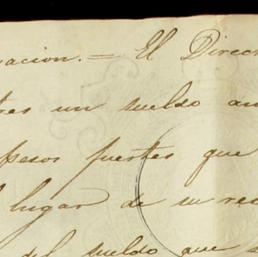 uacion. = El Direc
tres un sueldo an
pesos fuertes que
l lugar de su res
del sueldo que s